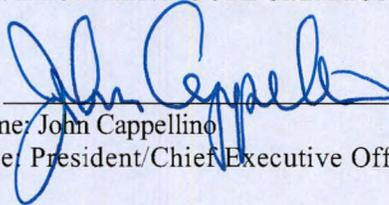 John Cappellino
me: John Cappellino
e: President/Chief Executive Off